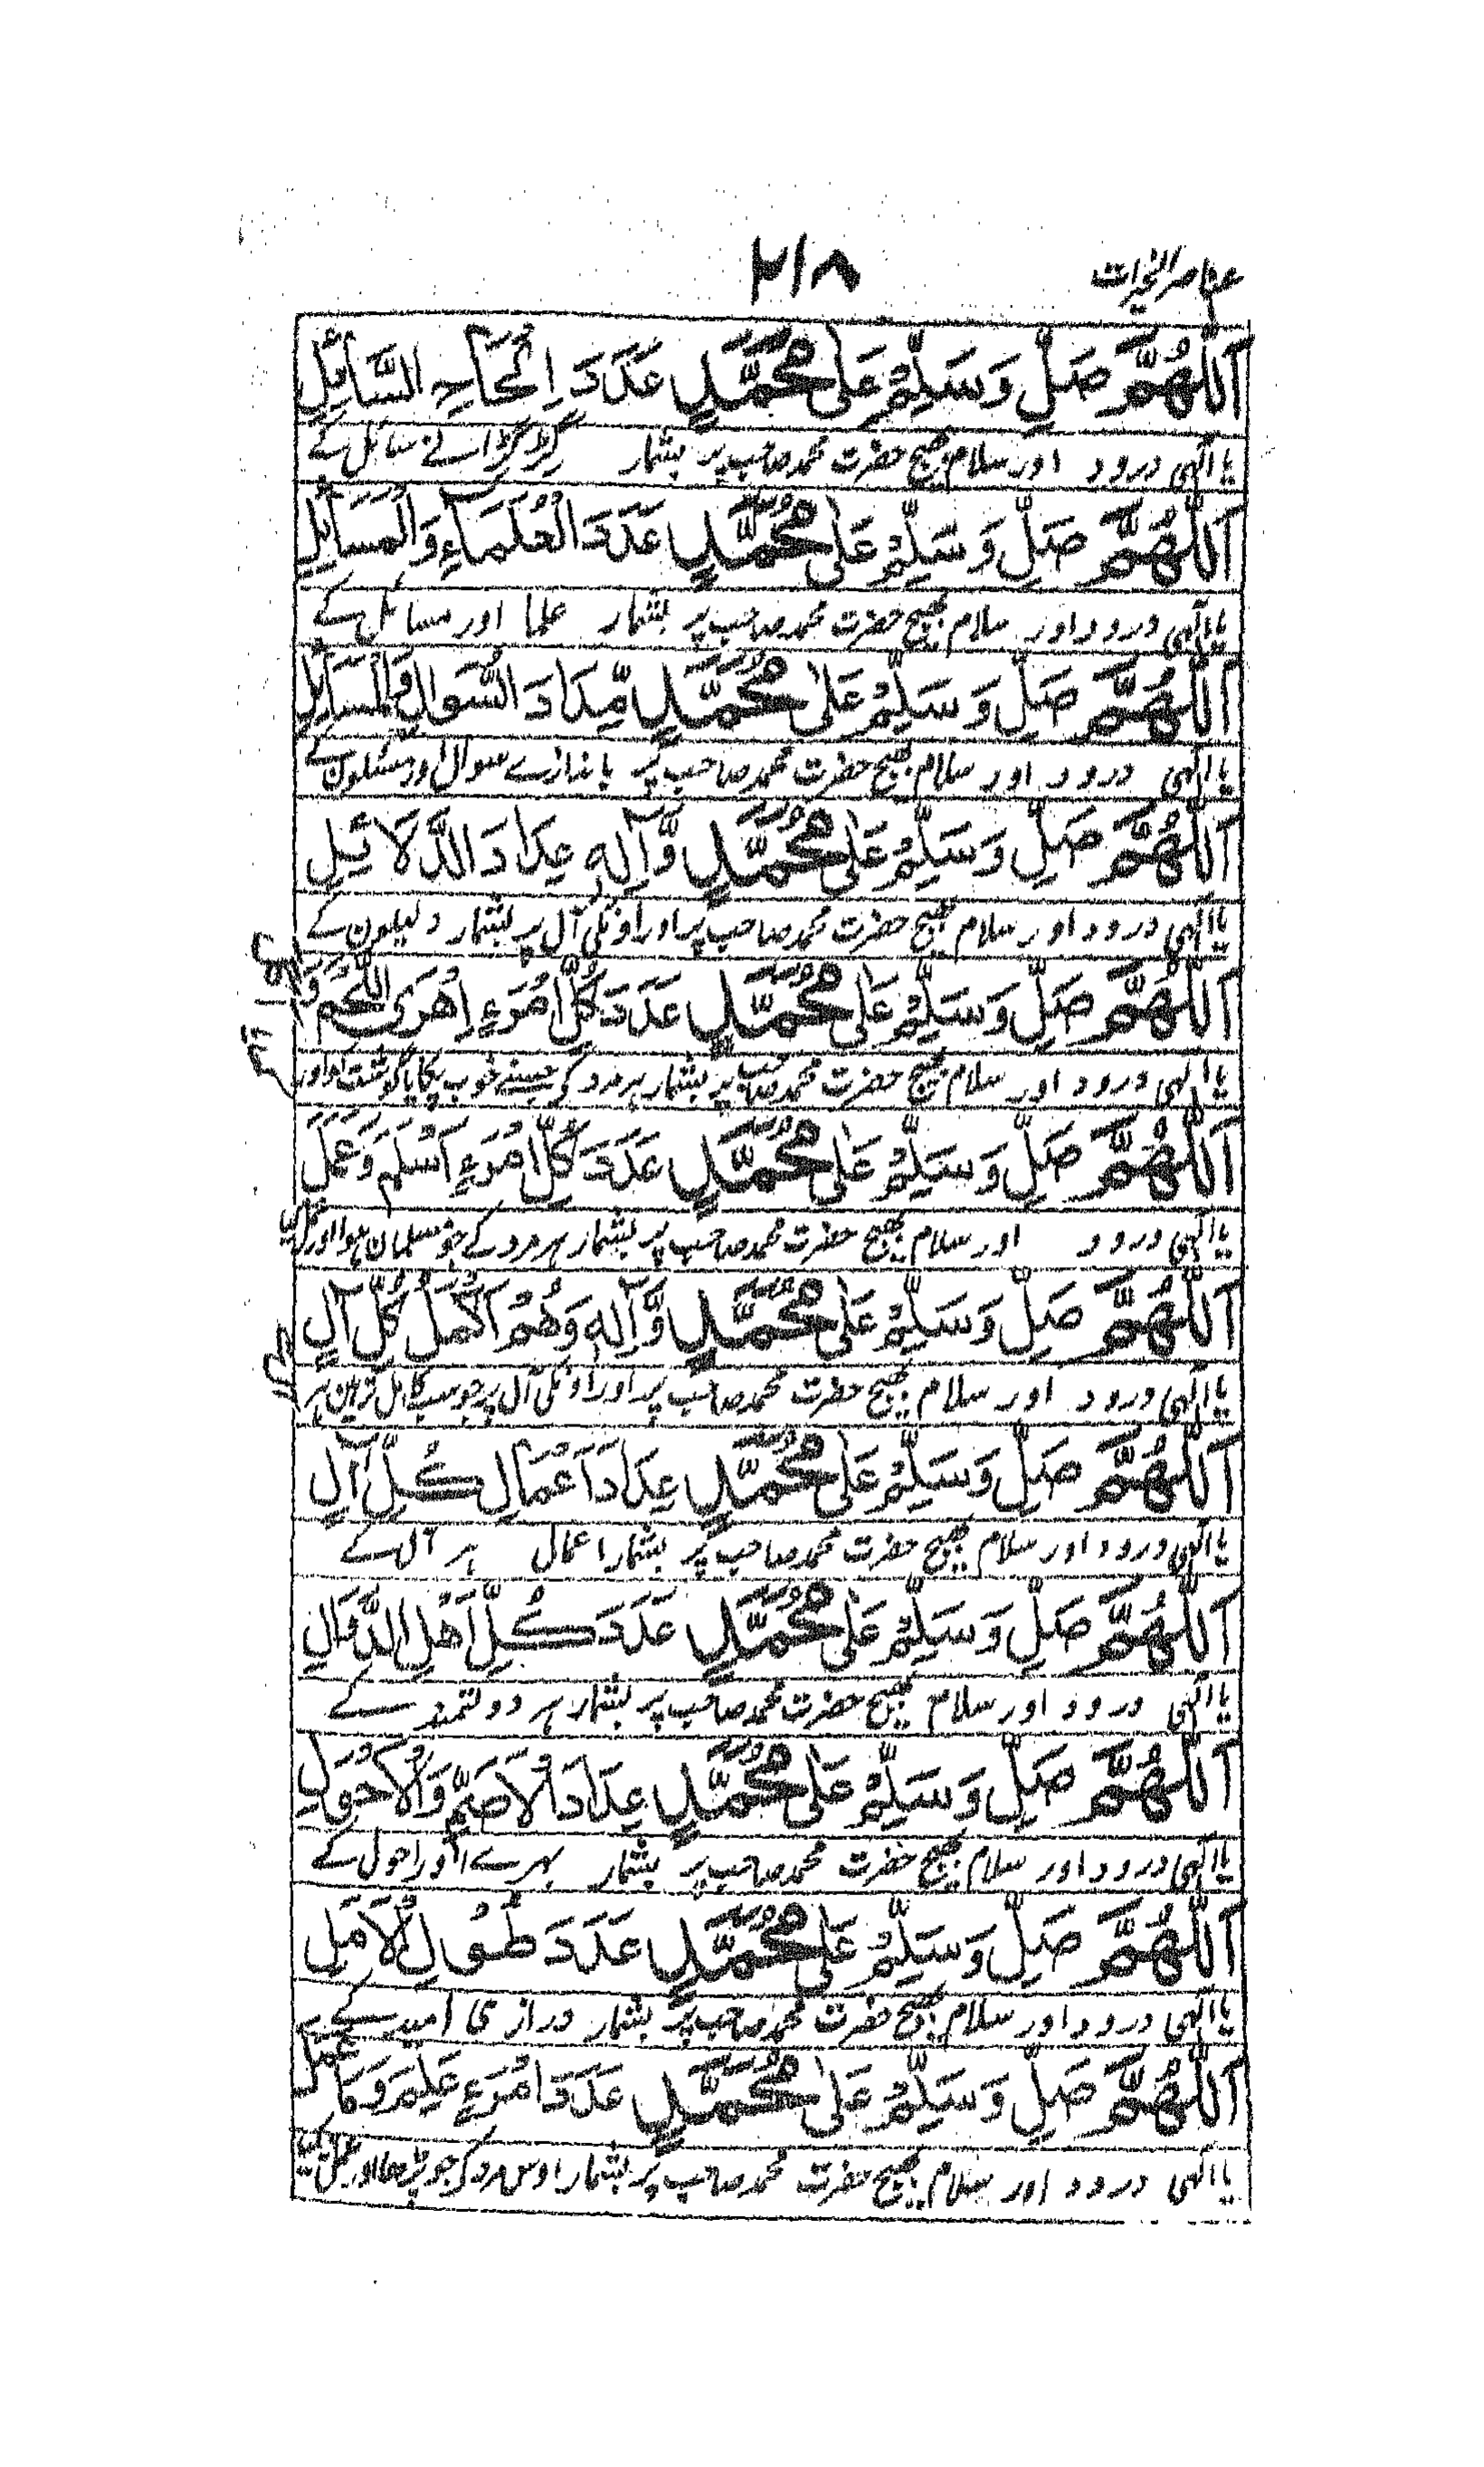 عناصر الخیرات
۲۱۸
اَللّٰهُمَّ صَلِّ وَسَلِّمْ عَلٰى مُحَمَّدٍ عَدَدَ اِلْحَاحِ السَّآئِلِ
یا الٰہی درود اور سلام بھیج حضرت محمد صاحب پر بشمار گڑگڑانے سائل کے
اَللّٰهُمَّ صَلِّ وَسَلِّمْ عَلٰى مُحَمَّدٍ عَدَدَ الْعُلَمَآءِ وَالْمَسَآئِلِ
یا الٰہی درود اور سلام بھیج حضرت محمد صاحب پر بشمار علما اور مسائل کے
اَللّٰهُمَّ صَلِّ وَسَلِّمْ عَلٰى مُحَمَّدٍ مِّدَادَ السُّوَالِ وَالْمَسَآئِلِ
یا الٰہی درود اور سلام بھیج حضرت محمد صاحب پر باندازے سوال اور مسئلون کے
اَللّٰهُمَّ صَلِّ وَسَلِّمْ عَلٰى مُحَمَّدٍ وَّآلِهٖ عِدَادَ الدَّلَائِلِ
یا الٰہی درود اور سلام بھیج حضرت محمد صاحب پر اور اونکی آل پر بشمار دلیلون کے
اَللّٰهُمَّ صَلِّ وَسَلِّمْ عَلٰى مُحَمَّدٍ عَدَدَ كُلِّ امْرَءٍ اَهْرَى اللَّحْمَ وَ
یا الٰہی درود اور سلام بھیج حضرت محمد صاحب پر بشمار ہر مرد کو جسنے خوب پکایا گوشت کو اور
اَللّٰهُمَّ صَلِّ وَسَلِّمْ عَلٰى مُحَمَّدٍ عَدَدَ كُلِّ امْرَءٍ اَسْلَمَ وَعَمَلَ
یا الٰہی درود اور سلام بھیج حضرت محمد صاحب پر بشمار ہر مرد کے جو مسلمان ہوا اور عمل کیا
اَللّٰهُمَّ صَلِّ وَسَلِّمْ عَلٰى مُحَمَّدٍ وَّآلِهٖ وَهُمْ اَكْمَلُ كُلِّ آلٍ
یا الٰہی درود اور سلام بھیج حضرت محمد صاحب پر اور اونکی آل پر جو سب کامل ترین ہر
اَللّٰهُمَّ صَلِّ وَسَلِّمْ عَلٰى مُحَمَّدٍ عِدَادَ اَعْمَالِ كُلِّ آلٍ
یا الٰہی درود اور سلام بھیج حضرت محمد صاحب پر بشمار اعمال ہر آل کے
اَللّٰهُمَّ صَلِّ وَسَلِّمْ عَلٰى مُحَمَّدٍ عَدَدَ كُلِّ اَهْلِ الدَّوَالِ
یا الٰہی درود اور سلام بھیج حضرت محمد صاحب پر بشمار ہر دولتمند کے
اَللّٰهُمَّ صَلِّ وَسَلِّمْ عَلٰى مُحَمَّدٍ عِدَادَ الْاَصَمِّ وَالْاَحْوَلِ
یا الٰہی درود اور سلام بھیج حضرت محمد صاحب پر بشمار بہرے اور احول کے
اَللّٰهُمَّ صَلِّ وَسَلِّمْ عَلٰى مُحَمَّدٍ عَدَدَ طُوْلِ الْاَمَلِ
یا الٰہی درود اور سلام بھیج حضرت محمد صاحب پر بشمار درازی امید کے
اَللّٰهُمَّ صَلِّ وَسَلِّمْ عَلٰى مُحَمَّدٍ عَدَدَ امْرَءٍ عَلِمَ وَمَا عَمِلَ
یا الٰہی درود اور سلام بھیج حضرت محمد صاحب پر بشمار اوس مرد کو جو پڑھا اور عمل نکیا